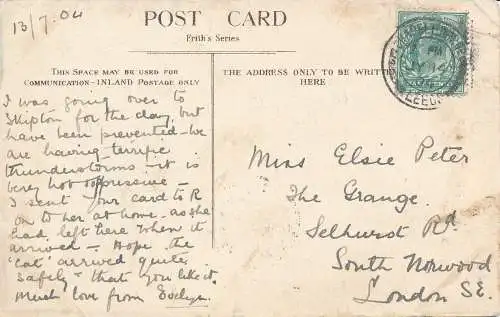 13/7.04
POST CARD
Frith's Series
THIS SPACE MAY BE USED FOR
COMMUNICATION - INLAND POSTAGE ONLY
THE ADDRESS ONLY TO BE WRITTEN
HERE
I was going over to
Skipton for the day, but
have been prevented - we
are having terrific
thunderstorms - it is
very hot oppressive -
I sent your card to R
on to her at home - as she
had left here when it
arrived - Hope the
"cat" arrived quite
safely - that you like it.
Much love from Evelyn.
Miss Elsie Peter
The Grange.
Selhurst Rd
South Norwood
London S.E.
LEEDS